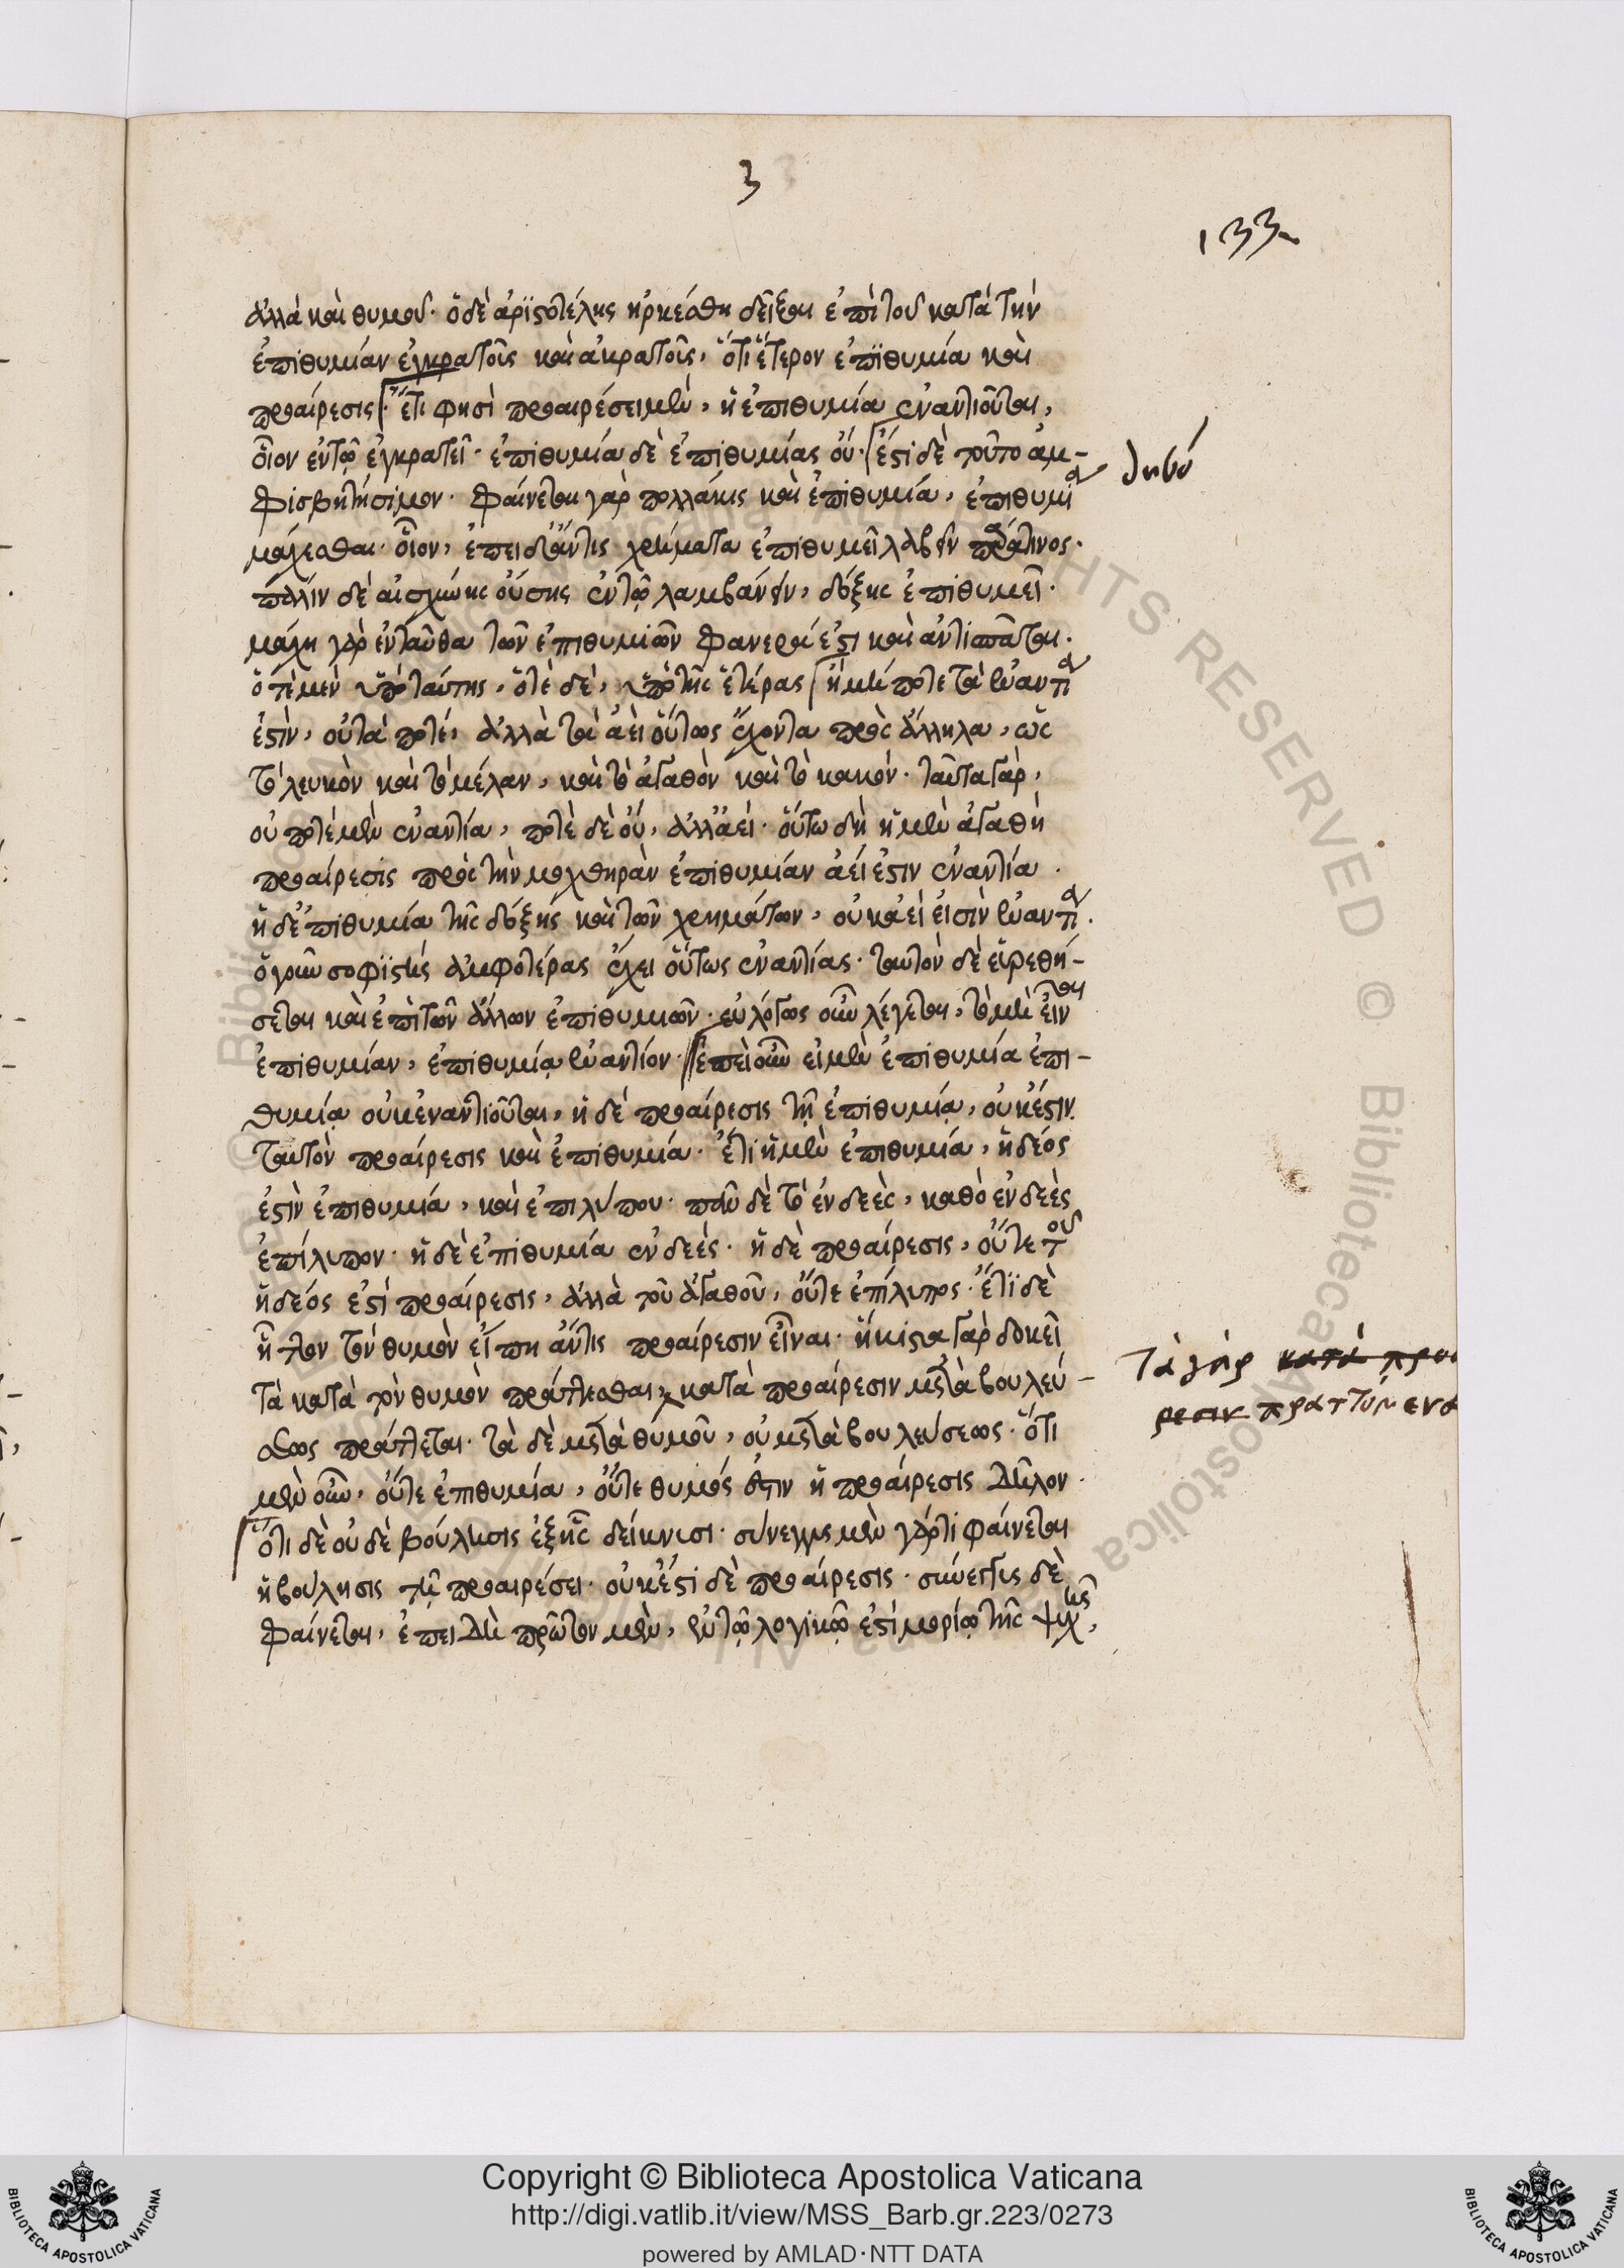 3
133
ἀλλὰ καὶ θυμοῦ· ὁ δὲ ἀριστοτέλης ἠρκέσθη δεῖξαι ἐπὶ τοῦ κατὰ τὴν
ἐπιθυμίαν ἐγκρατοῦς καὶ ἀκρατοῦς, ὅτι ἕτερον ἐπιθυμία καὶ
προαίρεσις· ἔτι φησὶ προαιρέσει μὲν, ἡ ἐπιθυμία ἐναντιοῦται,
οἷον ἐν τῷ ἐγκρατεῖ· ἐπιθυμία δὲ ἐπιθυμίας οὔ· ἔστι δὲ τοῦτο ἀμ-
φισβητήσιμον· φαίνεται γὰρ πολλάκις καὶ ἐπιθυμία, ἐπιθυμία
μάχεσθαι· οἷον, ἐπειδάν τις χρήματα ἐπιθυμεῖ λαβεῖν παράτινος·
πάλιν δὲ αἰσχύνης οὔσης ἐν τῷ λαμβάνειν, δόξης ἐπιθυμεῖ·
μάχη γὰρ ἐνταῦθα τῶν ἐπιθυμιῶν φανερά ἐστι καὶ ἀντισπᾶται·
ὁτὲ μὲν ὑπὸ ταύτης, ὁτὲ δὲ, ὑπὸ τῆς ἑτέρας ἢ μή ποτε τὰ ἐναντία
ἐστὶν, οὐ τά ποτέ, ἀλλὰ τὰ ἀεὶ οὕτως ἔχοντα πρὸς ἄλληλα, ὡς
τὸ λευκὸν καὶ τὸ μέλαν, καὶ τὸ ἀγαθὸν καὶ τὸ κακόν· ταῦτα γὰρ,
οὐ ποτὲ μὲν ἐναντία, ποτὲ δὲ οὔ, ἀλλ' ἀεί· οὕτω δὴ ἡ μὲν ἀγαθὴ
προαίρεσις πρὸς τὴν μοχθηρὰν ἐπιθυμίαν ἀεί ἐστιν ἐναντία·
ἡ δ' ἐπιθυμία τῆς δόξης καὶ τῶν χρημάτων, οὐκ ἀεί εἰσὶν ἐναντία·
ὁ γοῦν σοφιστὴς ἀμφοτέρας ἔχει οὕτως ἐναντίας· ταυτὸν δὲ εὑρεθή-
σεται καὶ ἐπὶ τῶν ἄλλων ἐπιθυμιῶν· εὐλόγως οὖν λέγεται, τὸ μὴ εἶναι
ἐπιθυμίαν, ἐπιθυμίᾳ ἐναντίον· ἐπεὶ οὖν εἰ μὲν ἐπιθυμία ἐπι-
θυμίᾳ οὐκ ἐναντιοῦται, ἡ δὲ προαίρεσις τῇ ἐπιθυμίᾳ, οὐκ ἔστιν
ταυτὸν προαίρεσις καὶ ἐπιθυμία· ἔτι ἡ μὲν ἐπιθυμία, ἡδέος
ἐστὶν ἐπιθυμία, καὶ ἐπιλύπου· πᾶν δὲ τὸ ἐνδεὲς, καθὸ ἐνδεὲς
ἐπίλυπον· ἡ δὲ ἐπιθυμία ἐνδεές· ἡ δὲ προαίρεσις, οὔτε τοῦ
ἡδέος ἐστὶ προαίρεσις, ἀλλὰ τοῦ ἀγαθοῦ, οὔτε ἐπίλυπος· ἔτι δὲ
ἧττον τὸν θυμὸν εἴπῃ ἄν τις προαίρεσιν εἶναι· ἥκιστα γὰρ δοκεῖ
τὰ κατὰ τὸν θυμὸν πράττεσθαι, κατὰ προαίρεσιν μετὰ βουλεύ-
σεως πράττεται· τὰ δὲ μετὰ θυμοῦ, οὐ μετὰ βουλεύσεως· ὅτι
μὲν οὖν, οὔτε ἐπιθυμία, οὔτε θυμός ἐστιν ἡ προαίρεσις δῆλον·
ὅτι δὲ οὐδὲ βούλησις ἑξῆς δείκνυσι· συνεγγυς μὲν γάρ τι φαίνεται
ἡ βούλησις τῇ προαιρέσει· οὐκ ἔστι δὲ προαίρεσις· σύνεγγυς δὲ
φαίνεται, ἐπειδὴ πρῶτον μὲν, ἐν τῷ λογικῷ ἐστὶ μορίῳ τῆς ψυχῆς,
τὰ γὰρ κατὰ προαι
ρεσιν πραττόμενα
Copyright © Biblioteca Apostolica Vaticana
http://digi.vatlib.it/view/MSS_Barb.gr.223/0273
powered by AMLAD·NTT DATA
BIBLIOTECA APOSTOLICA VATICANA
BIBLIOTECA APOSTOLICA VATICANA